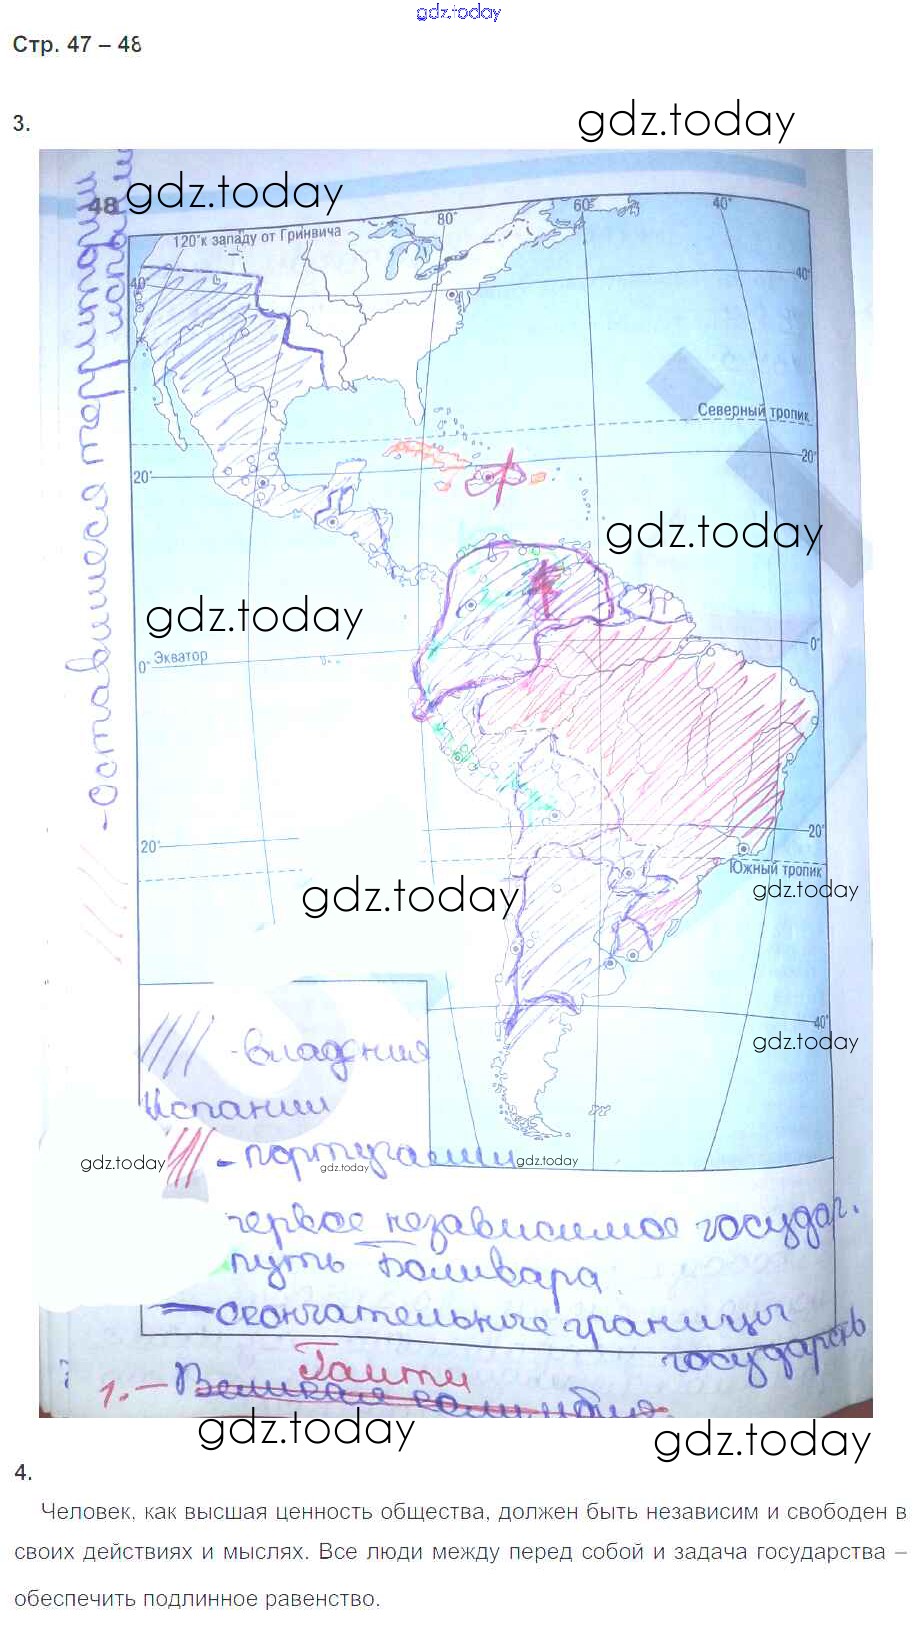 gdz.today
Стр. 47 – 48
3.
gdz.today
gdz.today
48
120°к западу от Гринвича
80°
60°
40°
40°
40°
Северный тропик
20°
20°
gdz.today
gdz.today
0° Экватор
0°
20°
20°
Южный тропик
gdz.today
gdz.today
40°
gdz.today
- оставшиеся территории
- владения
Испании
- португалии
gdz.today
gdz.today
gdz.today
первое независимое государ.
путь Боливара
— окончательные границы
государств
Гаити
1. — Великая колумбия.
gdz.today
gdz.today
4.
Человек, как высшая ценность общества, должен быть независим и свободен в
своих действиях и мыслях. Все люди между перед собой и задача государства –
обеспечить подлинное равенство.